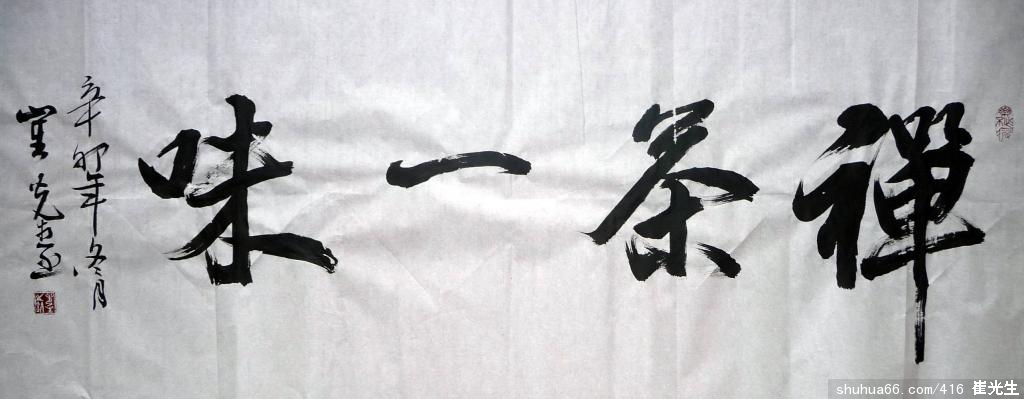 禪茶一味
辛卯年冬月
崔光生
shuhua66.com/416 崔光生